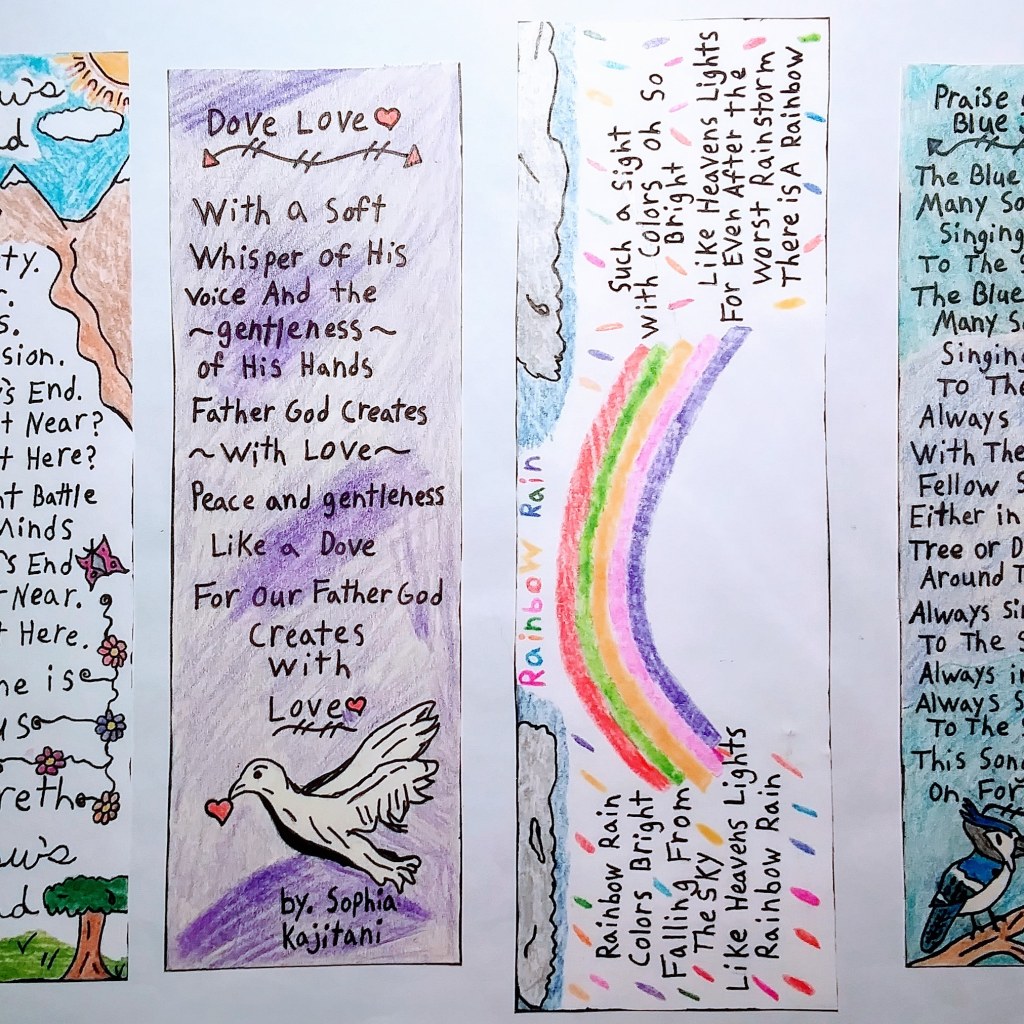 ty.
r.
s.
sion.
's End.
t Near?
t Here?
nt Battle
Minds
's End
r Near.
t Here.
ne is
us
reth
Dove Love
With a Soft
Whisper of His
Voice And the
~gentleness~
of His Hands
Father God Creates
~With Love~
Peace and gentleness
Like a Dove
For our Father God
Creates
with
Love
by. Sophia
Kajitani
Rainbow Rain
Rainbow Rain
Colors Bright
Falling From
The Sky
Like Heavens Lights
Rainbow Rain
Such a Sight
With Colors Oh So
Bright
Like Heavens Lights
For Even After the
Worst Rainstorm
There is A Rainbow
Praise
Blue
The Blue
Many So
Singing
To The S
The Blue
Many S
Singing
To The
Always
With The
Fellow S
Either in
Tree or D
Around T
Always Si
To The S
Always in
Always S
To The S
This Son
on For